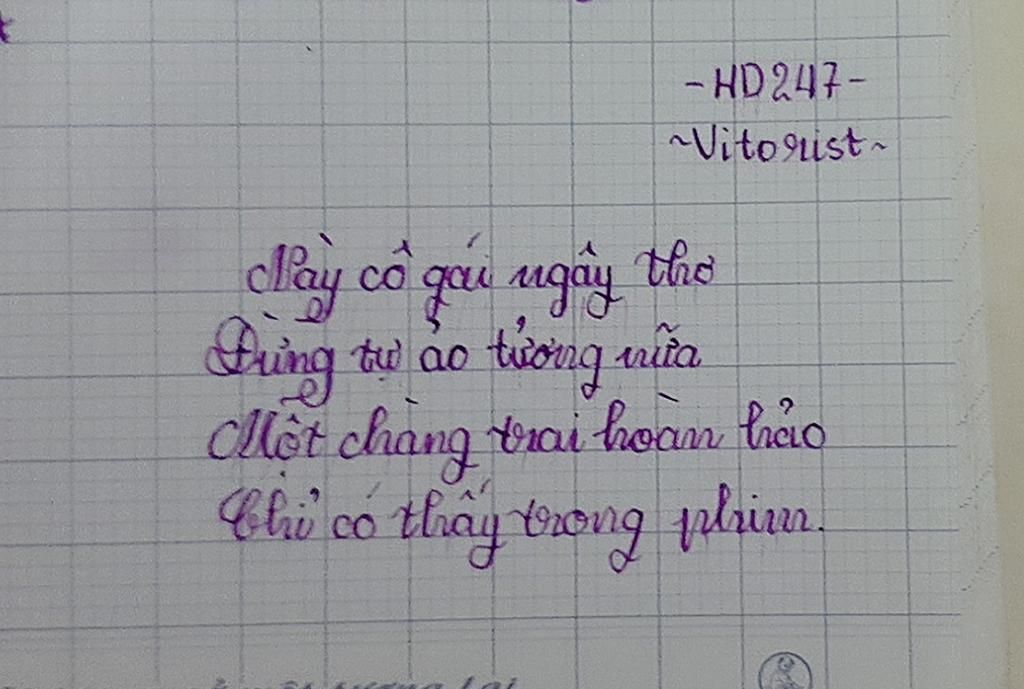 -HD247-
~Vitorist~
Này cô gái ngây thơ
Đừng tự ảo tưởng nữa
Một chàng trai hoàn hảo
Chỉ có thấy trong phim.